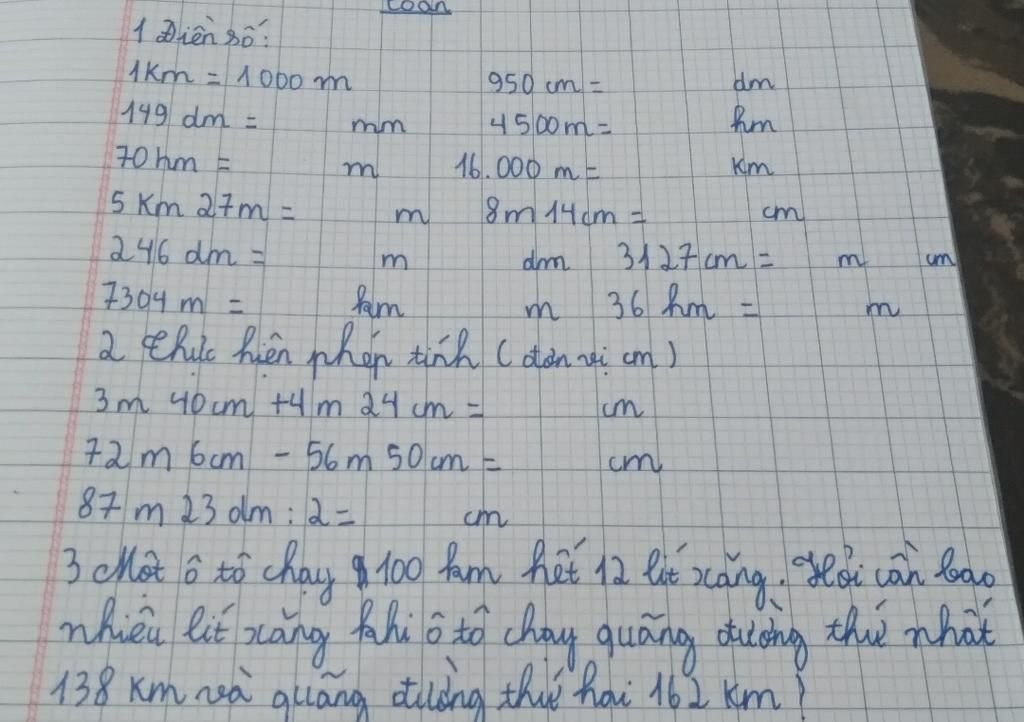 toán
1 Điền số:
1Km = 1000 m 950 cm = dm
149 dm = mm 4500m = hm
70 hm = m 16.000 m = Km
5 Km 27m = m 8m 14cm = cm
246 dm = m dm 3127cm = m cm
7304 m = km m 36 hm = m
2 thực hiện phép tính (đơn vị cm)
3m 40cm + 4 m 24 cm = cm
72 m 6cm - 56m 50cm = cm
87 m 23 dm : 2 = cm
3 Một ô tô chạy 100 km hết 12 lít xăng. Hỏi cần bao
nhiêu lít xăng khi ô tô chạy quãng đường thứ nhất
138 Km và quãng đường thứ hai 162 Km?